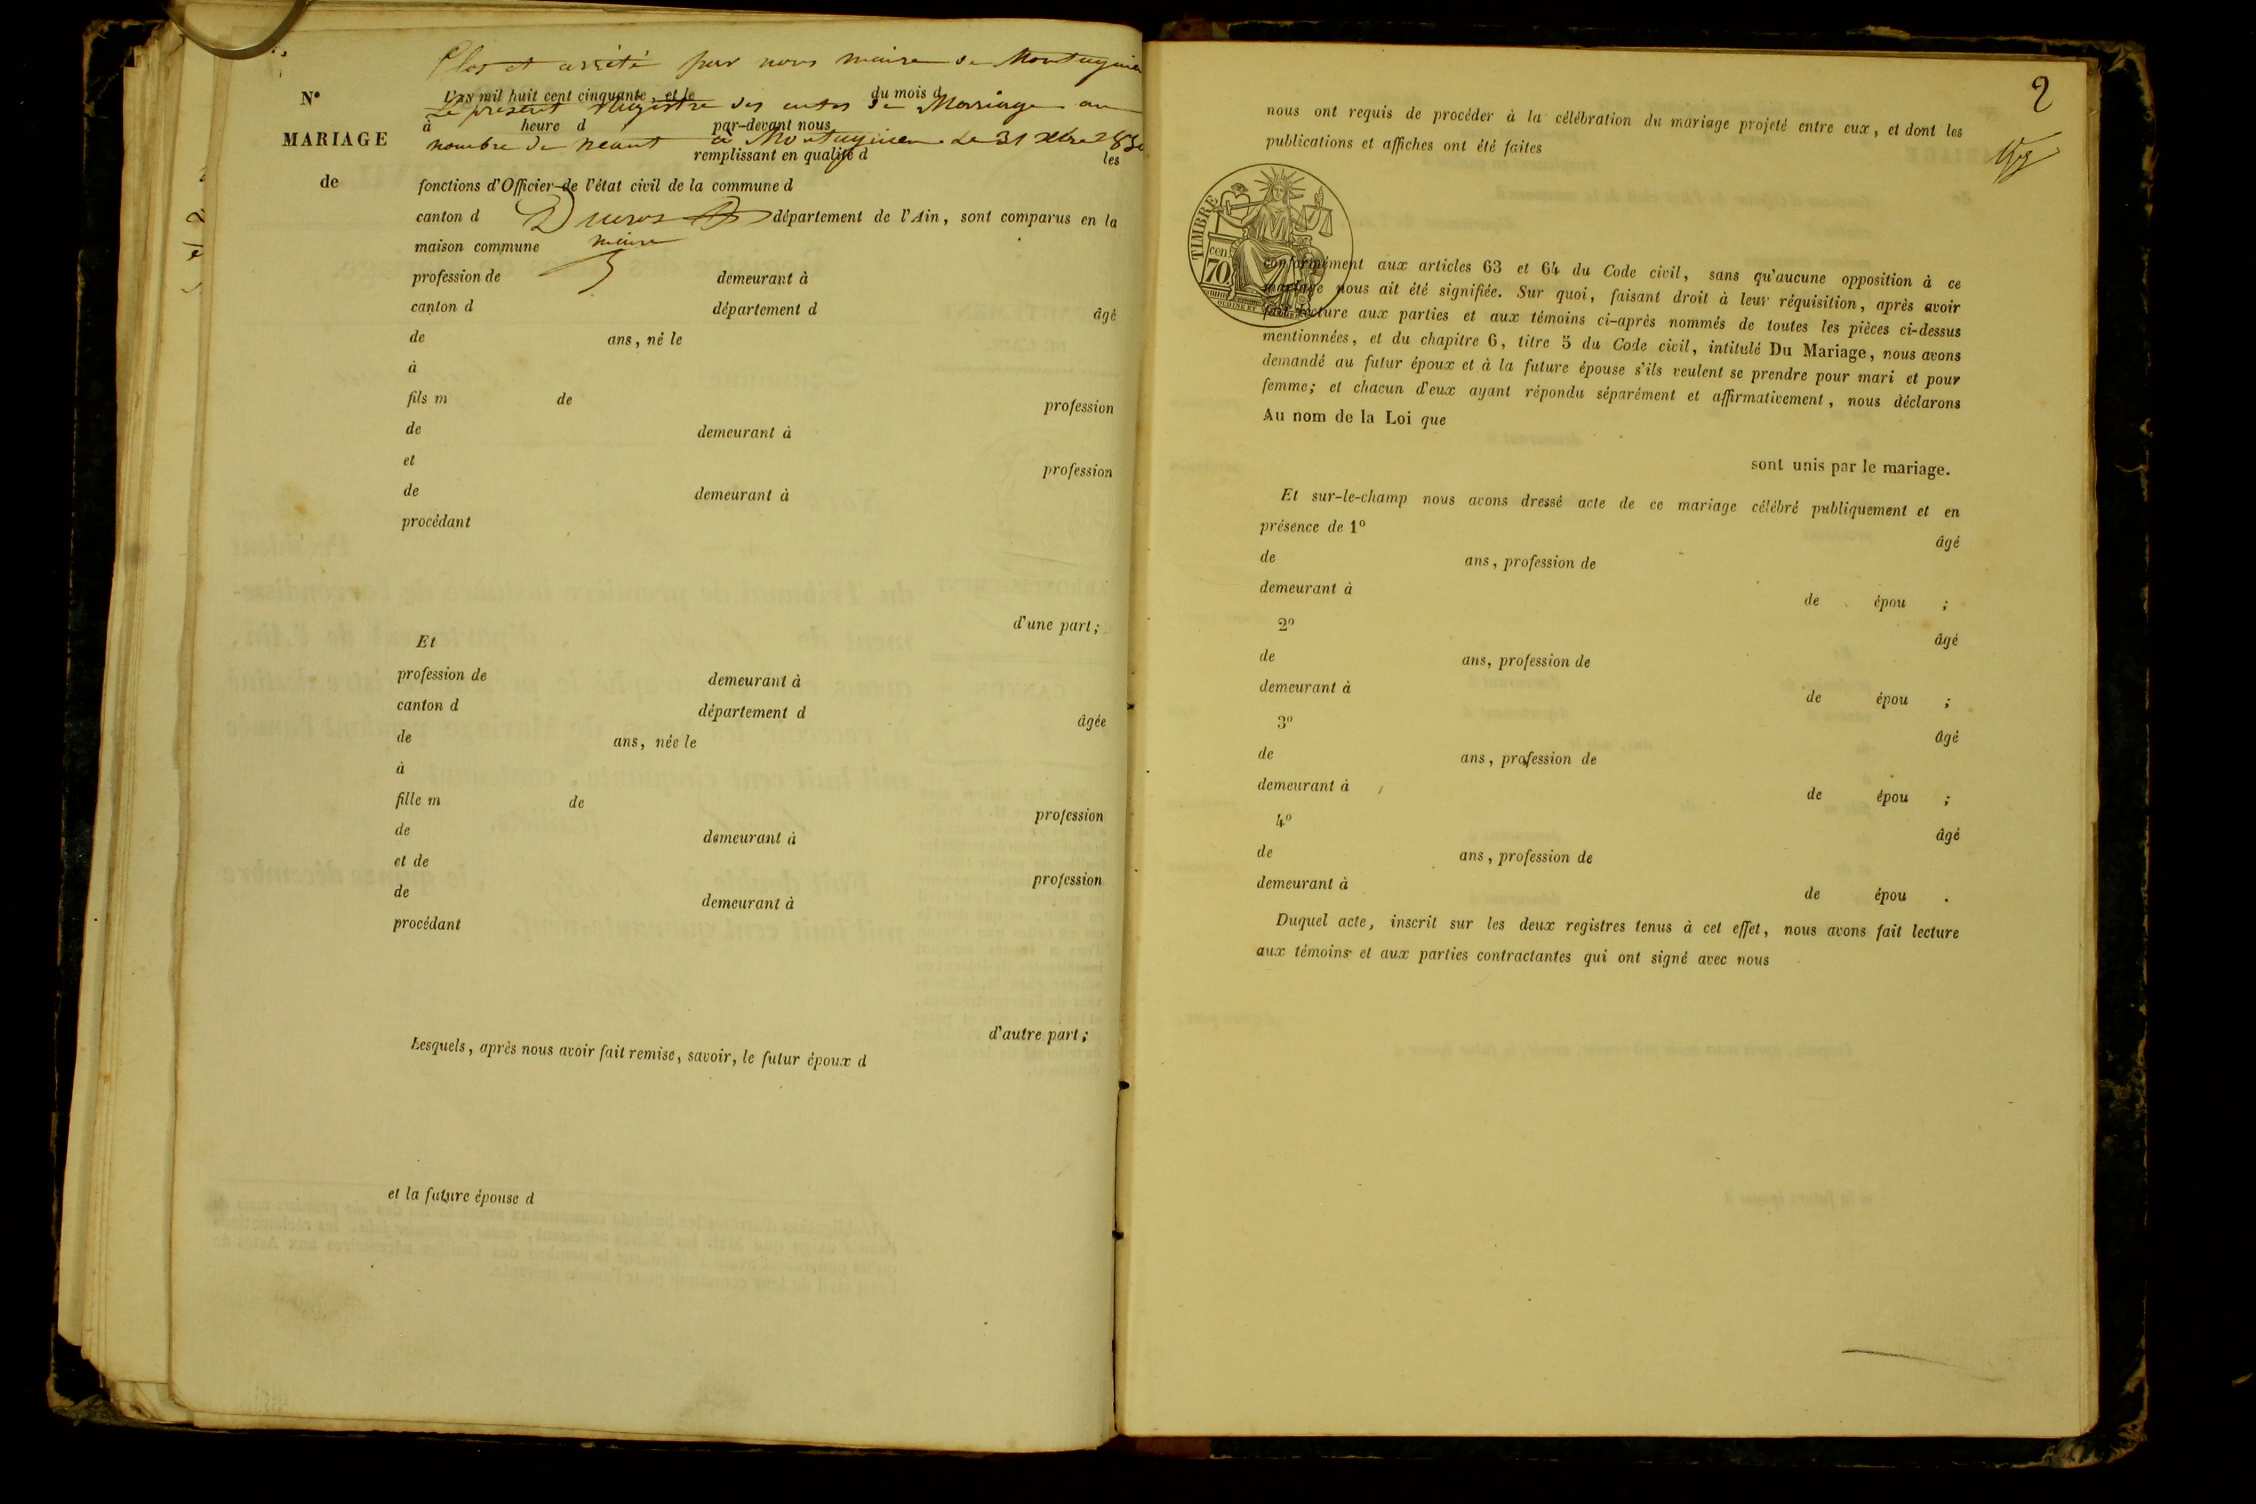 Clos et arrêté par nous maire de Montagnieu
N° L'AN mil huit cent cinquante, et le du mois d
Le présent Registre des actes de Mariage au
MARIAGE à heure d par-devant nous
nombre de neant à Montagnieu le 31 Xbre 1850
remplissant en qualité d les
de fonctions d'Officier de l'état civil de la commune d
canton d département de l'Ain, sont comparus en la
maison commune maire
profession de demeurant à
canton d département d âgé
de ans, né le
à
fils m de profession
de demeurant à
et profession
de demeurant à
procédant
d'une part;
Et
profession de demeurant à
canton d département d âgée
de ans, née le
à
fille m de profession
de demeurant à
et de profession
de demeurant à
procédant
d'autre part;
Lesquels, après nous avoir fait remise, savoir, le futur époux d
et la future épouse d
2
nous ont requis de procéder à la célébration du mariage projeté entre eux, et dont les
publications et affiches ont été faites
TIMBRE
70
cen
conformément aux articles 63 et 64 du Code civil, sans qu'aucune opposition à ce
mariage nous ait été signifiée. Sur quoi, faisant droit à leur réquisition, après avoir
fait lecture aux parties et aux témoins ci-après nommés de toutes les pièces ci-dessus
mentionnées, et du chapitre 6, titre 5 du Code civil, intitulé Du Mariage, nous avons
demandé au futur époux et à la future épouse s'ils veulent se prendre pour mari et pour
femme; et chacun d'eux ayant répondu séparément et affirmativement, nous déclarons
Au nom de la Loi que
sont unis par le mariage.
Et sur-le-champ nous avons dressé acte de ce mariage célébré publiquement et en
présence de 1° âgé
de ans, profession de
demeurant à de épou ;
2° âgé
de ans, profession de
demeurant à de épou ;
3° âgé
de ans, profession de
demeurant à de épou ;
4° âgé
de ans, profession de
demeurant à de épou .
Duquel acte, inscrit sur les deux registres tenus à cet effet, nous avons fait lecture
aux témoins et aux parties contractantes qui ont signé avec nous